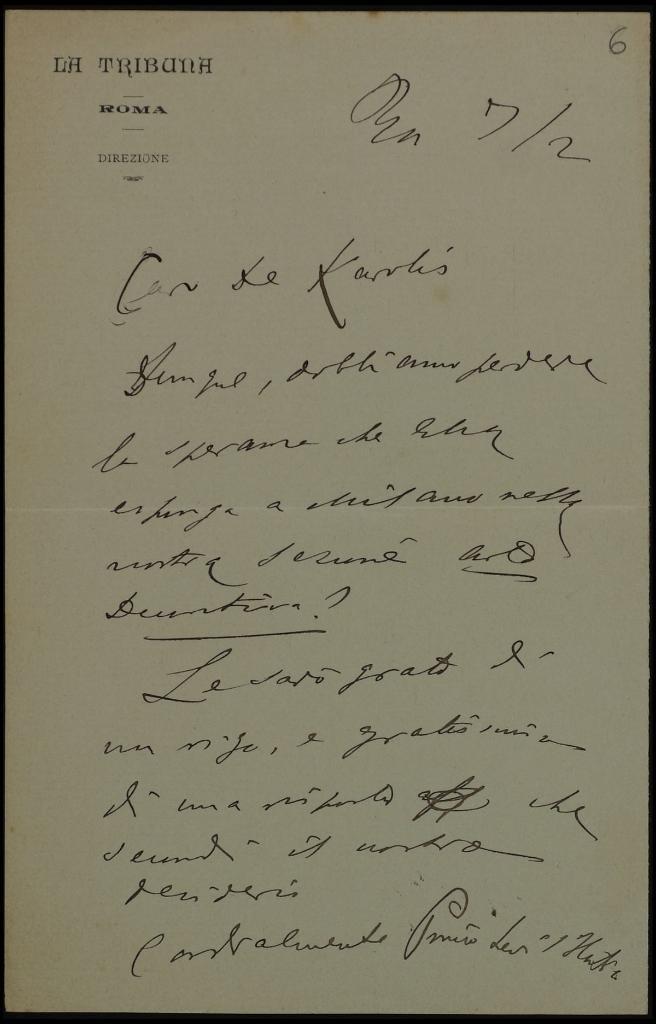 6
LA TRIBUNA
ROMA
DIREZIONE
7/2
Caro De Karolis
Dunque, dobbiamo perdere
la speranza che Ella
esponga a Milano nella
nostra sezione arte
Decorativa?
Le sarò grato di
un rigo, e gratissimo
di una risposta che
secondi il nostro
desiderio
Cordialmente Primo Levi l'Italico